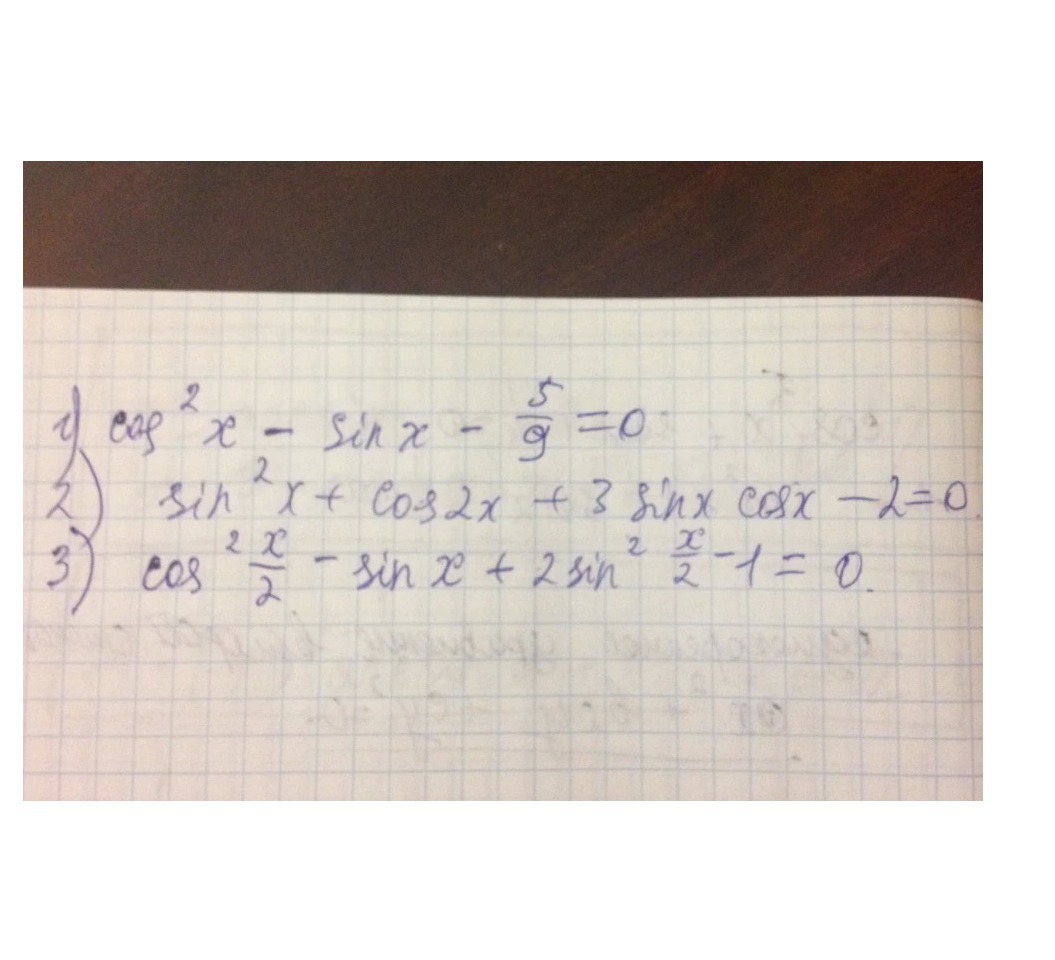 1) cos² x - sin x - 5/9 = 0
2) sin² x + cos 2x + 3 sin x cos x - 2 = 0.
3) cos² x/2 - sin x + 2 sin² x/2 - 1 = 0.